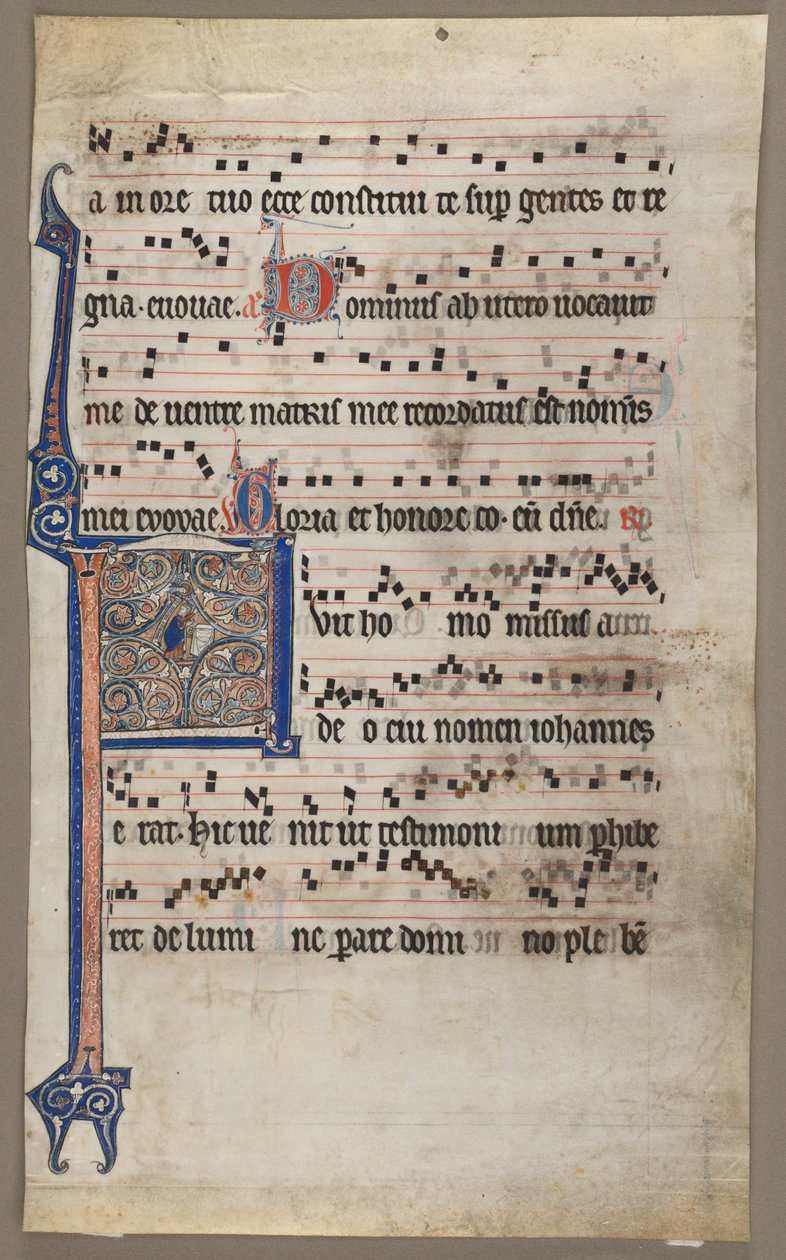 a in ore tuo ecce constitui te sup̱ gentes et re
gna. euouae. aͣ Dominus ab utero uocauit
me de uentre matris mee recordatus est nominis
mei evovae. V Gloria et honore co. eū dn̄e. R.
Fuit homo missus a
deo cui nomen iohannes
erat. hic uenit ut testimonium ꝑhibe
ret de lumine ꝑare domino plebē